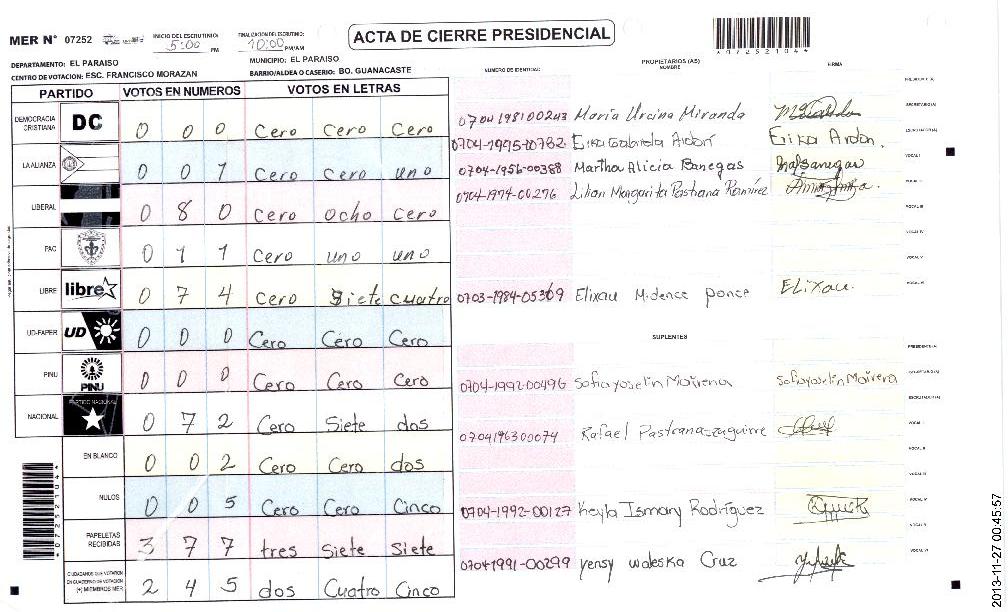 MER N° 07252
INICIO DEL ESCRUTINIO: 5:00 PM
FINALIZACION DEL ESCRUTINIO: 10:00 PM/AM
ACTA DE CIERRE PRESIDENCIAL
DEPARTAMENTO: EL PARAISO
MUNICIPIO: EL PARAISO
CENTRO DE VOTACION: ESC. FRANCISCO MORAZAN
BARRIO/ALDEA O CASERIO: BO. GUANACASTE
PARTIDO VOTOS EN NUMEROS VOTOS EN LETRAS
DEMOCRACIA CRISTIANA DC 0 0 0 Cero Cero Cero
LA ALIANZA 0 0 1 Cero Cero uno
LIBERAL 0 8 0 Cero Ocho Cero
PAC 0 1 1 Cero uno uno
LIBRE libre 0 7 4 Cero Siete cuatro
UD-FAPER UD 0 0 0 Cero Cero Cero
PINU PINU 0 0 0 Cero Cero Cero
NACIONAL PARTIDO NACIONAL 0 7 2 Cero Siete dos
EN BLANCO 0 0 2 Cero Cero dos
NULOS 0 0 5 Cero Cero Cinco
PAPELETAS RECIBIDAS 3 7 7 tres Siete Siete
CIUDADANOS QUE VOTARON EN CUADERNO DE VOTACION (+) MIEMBROS MER 2 4 5 dos Cuatro Cinco
*07252104*
NUMERO DE IDENTIDAD PROPIETARIOS (AS) NOMBRE FIRMA
PRESIDENTE (A)
0704198100243 Maria Urcina Miranda SECRETARIO (A)
0704-1995-00782 Erika Gabriela Ardon Erika Ardon. ESCRUTADOR (A)
0704-1956-00388 Martha Alicia Banegas VOCAL I
0704-1974-00276 Lilian Margarita Pastrana Ramírez VOCAL II
VOCAL III
VOCAL IV
VOCAL V
0703-1984-05369 Elixau Midence ponce Elixau. VOCAL VI
SUPLENTES
PRESIDENTE (A)
0704-1992-00496 Sofia yoselin Mairena Sofia yoselin Mairena SECRETARIO (A)
ESCRUTADOR (A)
0704196300074 Rafael Pastrana Izaguirre VOCAL I
VOCAL II
VOCAL III
0704-1992-00127 Keyla Ismary Rodríguez VOCAL IV
VOCAL V
0704-1991-00299 yensy waleska Cruz VOCAL VI
*07252104*
2013-11-27 00:45:57